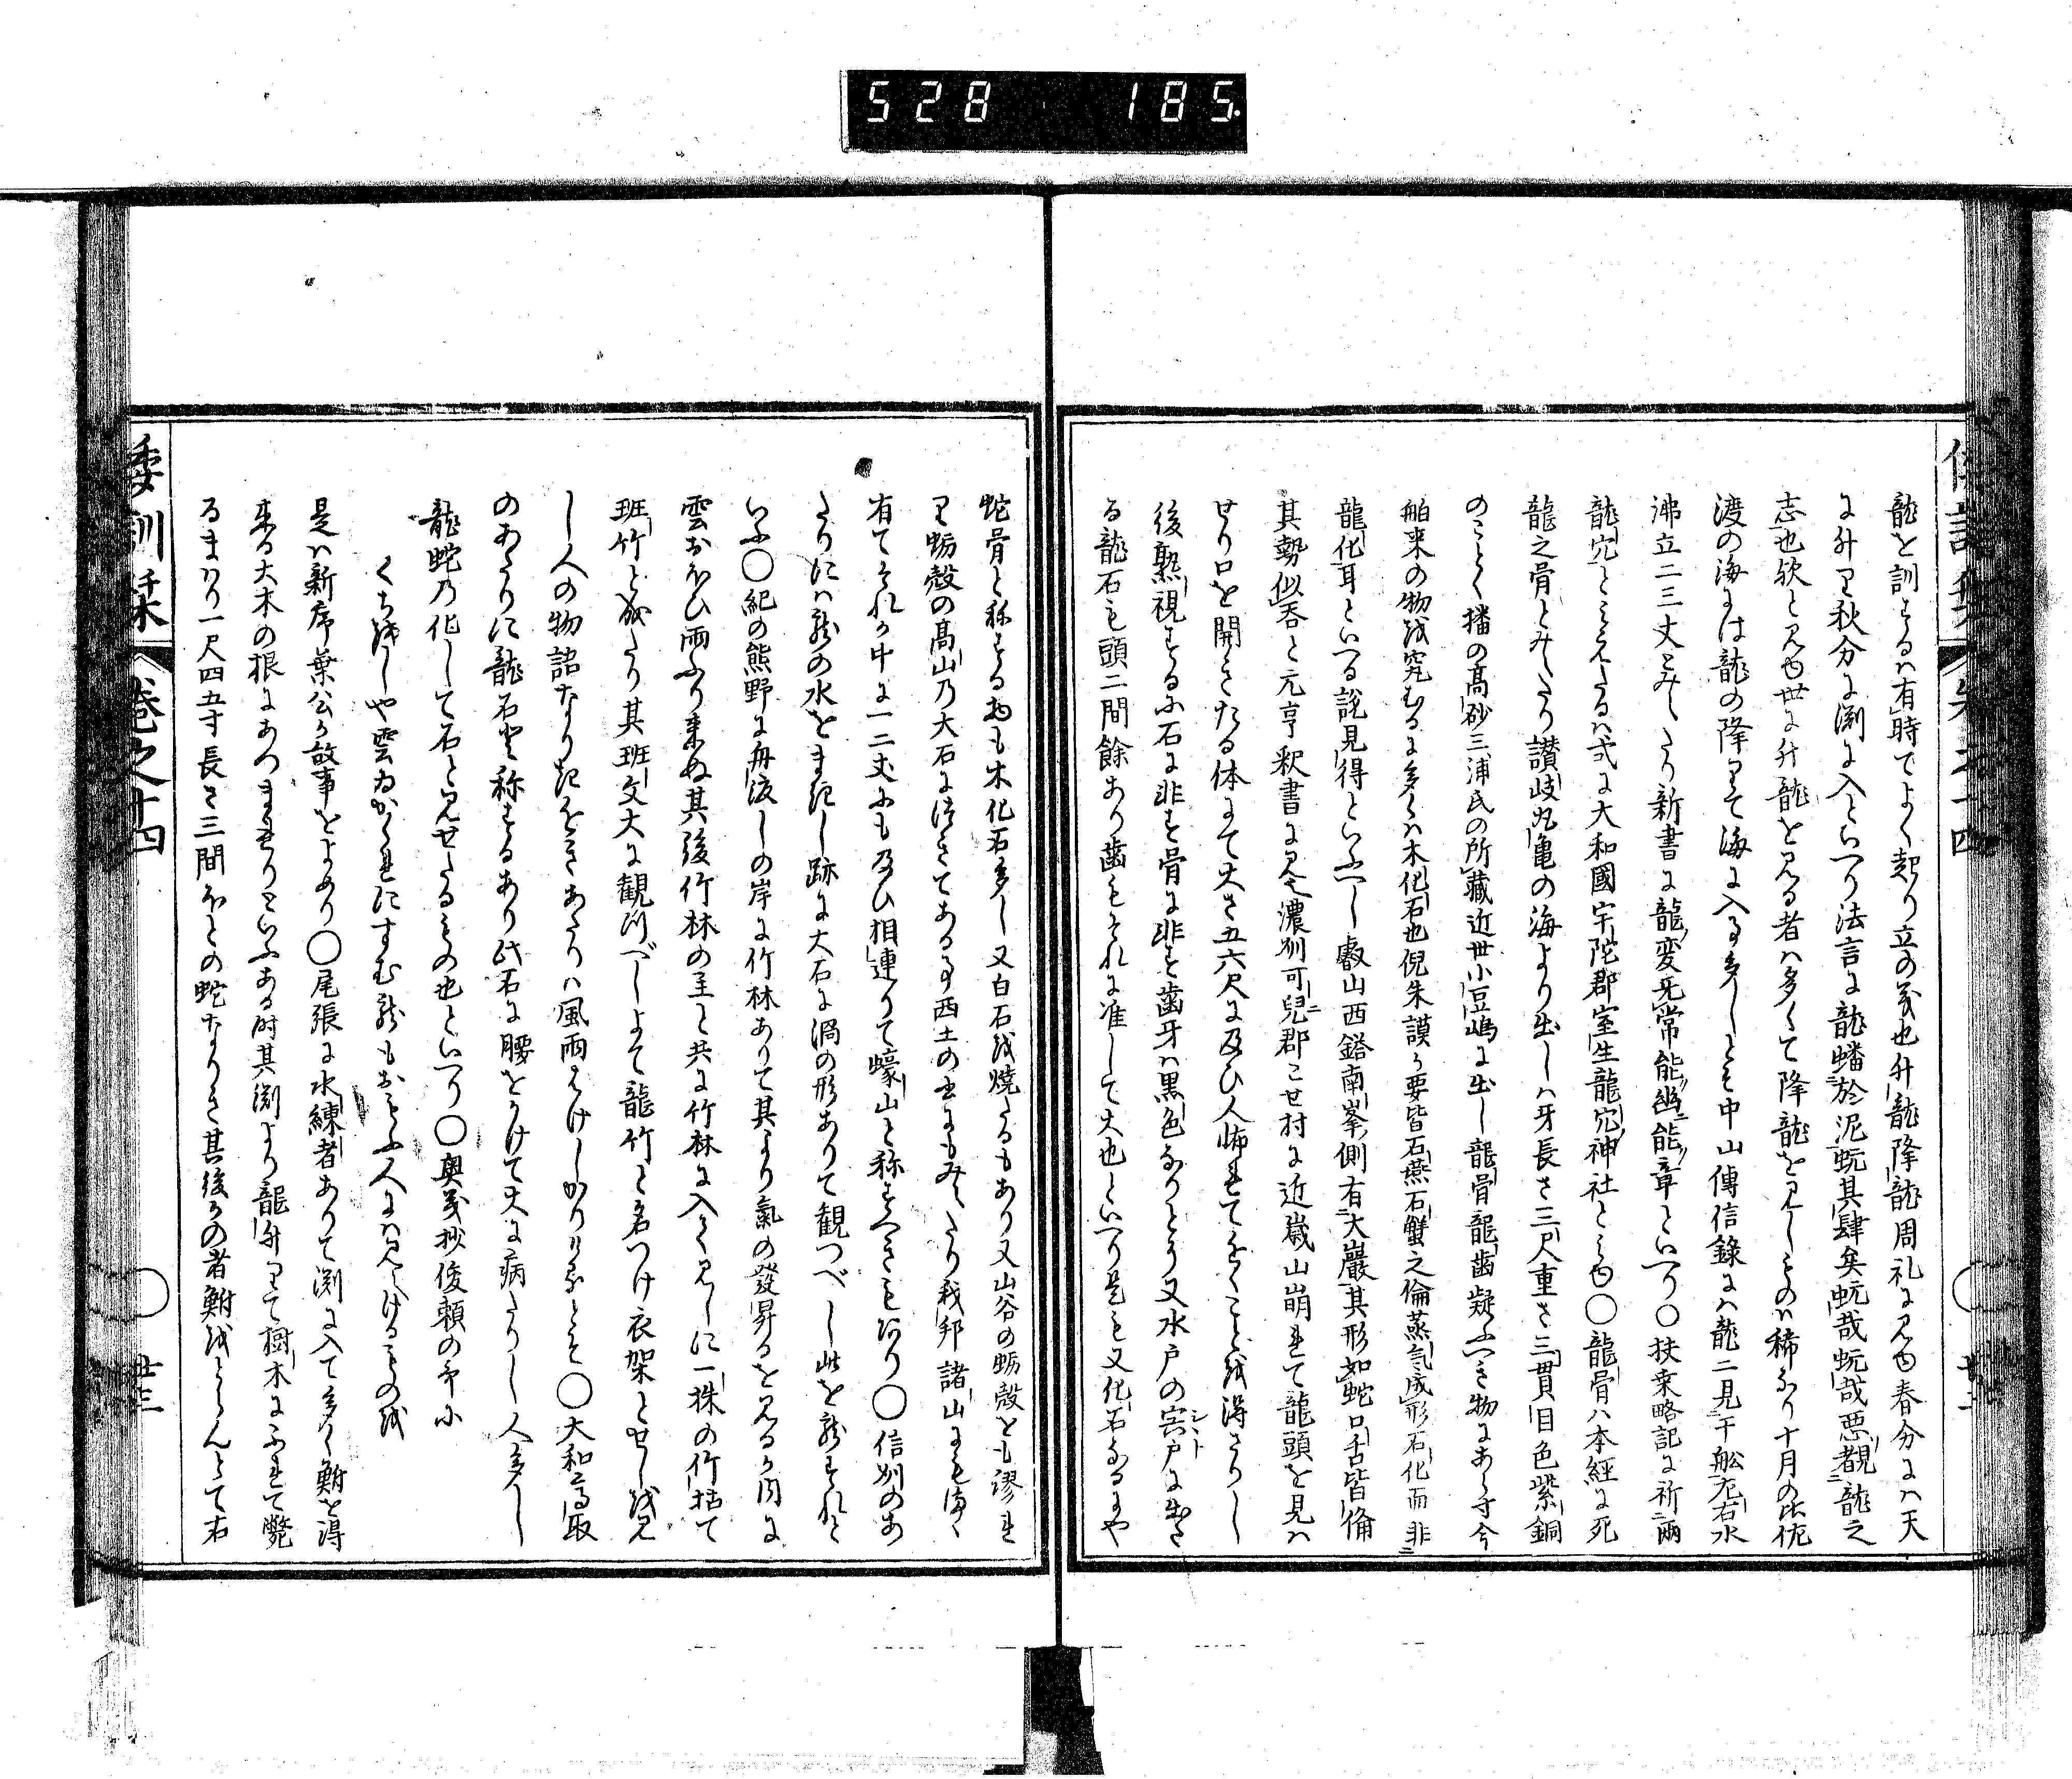 528 185.
龍を訓するハ有時てよく起り立の義也升龍降龍周礼に見ゆ春分にハ天
に升り秋分に渕に入といへり法言に龍蟠於泥蚖其肆矣蚖哉蚖哉惡覩龍之
志也歟と見ゆ世に升龍を見る者ハ多くて降龍を見しものハ稀なり十月の比佐
渡の海には龍の降りて海に入る事多しとそ中山傳信錄にハ龍二見于船左右水
沸立二三丈とみえたり新書に龍変死常能幽能章といへり○扶桒略記に祈雨
龍穴とみえたるハ式に大和國宇陀郡室生龍穴神社とみゆ○龍骨ハ本經に死
龍之骨とみえたり讃岐丸亀の海より出しハ牙長さ三尺重さ三貫目色紫銅
のことく播の髙砂三浦氏の所藏近世小豆嶋に出し龍骨龍齒疑ふへき物にあらす今
舶来の物を究むるに多くハ木化石也倪朱謨か要皆石燕石蟹之倫蒸气成形石化而非
龍化耳といへる説見得といふへし叡山西鎝南峯側有大巖其形如蛇口舌皆倫
其勢似呑と元亨釈書に見ゆ濃州可兒郡こせ村に近歳山崩れて龍頭を見ハ
せり口を開きたる体にて大さ五六尺に及ひ人怖れてちかくことを得さりし
後熟視するに石に非す骨に非す齒牙ハ黒色なりとそ又水戸の宍戸シシトに出さ
る龍石も頭二間餘あり齒もそれに准して大也といへり是も又化石なるにや
蛇骨と称する物も木化石多し又白石を燒たるもあり又山谷の蛎殻とも謬れ
り蛎殻の髙山乃大石に附きてある事西土の書にもみえたり我邦諸山にも海く
有てそれか中に一二丈にも及ひ相連りて蠔山と称すへきもあり○信州のあ
たりにハ龍の水をまきし跡に大石に渦の形ありて観つべし此を龍すれと
いふ○紀の熊野に舟渡しの岸に竹林ありて其より氣の發昇るを見るか内に
雲おほひ雨ふり来ぬ其後竹林の主と共に竹林に入て見しに一株の竹枯て
班竹と成たり其班文大に観つべしよて龍竹と名つけ衣架とせしを見
し人の物語なり起をきあたりハ風雨はけしかりけるとそ○大和高取
のあたりに龍石と称するあり此石に腰をかけて大に病たりし人多し
龍蛇乃化して石と見せたるもの也といへり○奥義抄俊頼の哥に
くち惜しや雲ゐかくれにすむ龍もおもふ人にハ見えけるものを
是ハ新序葉公か故事をよめり○尾張に水練者ありて渕に入て多く鮒を得
来る大木の根にあつまれりといふある時其渕より龍升りて樹木にふれて斃
るまハり一尺四五寸長さ三間ほとの蛇なりき其後かの者鮒をとらんとて右
倭訓栞 卷之十四 ○ 廿三